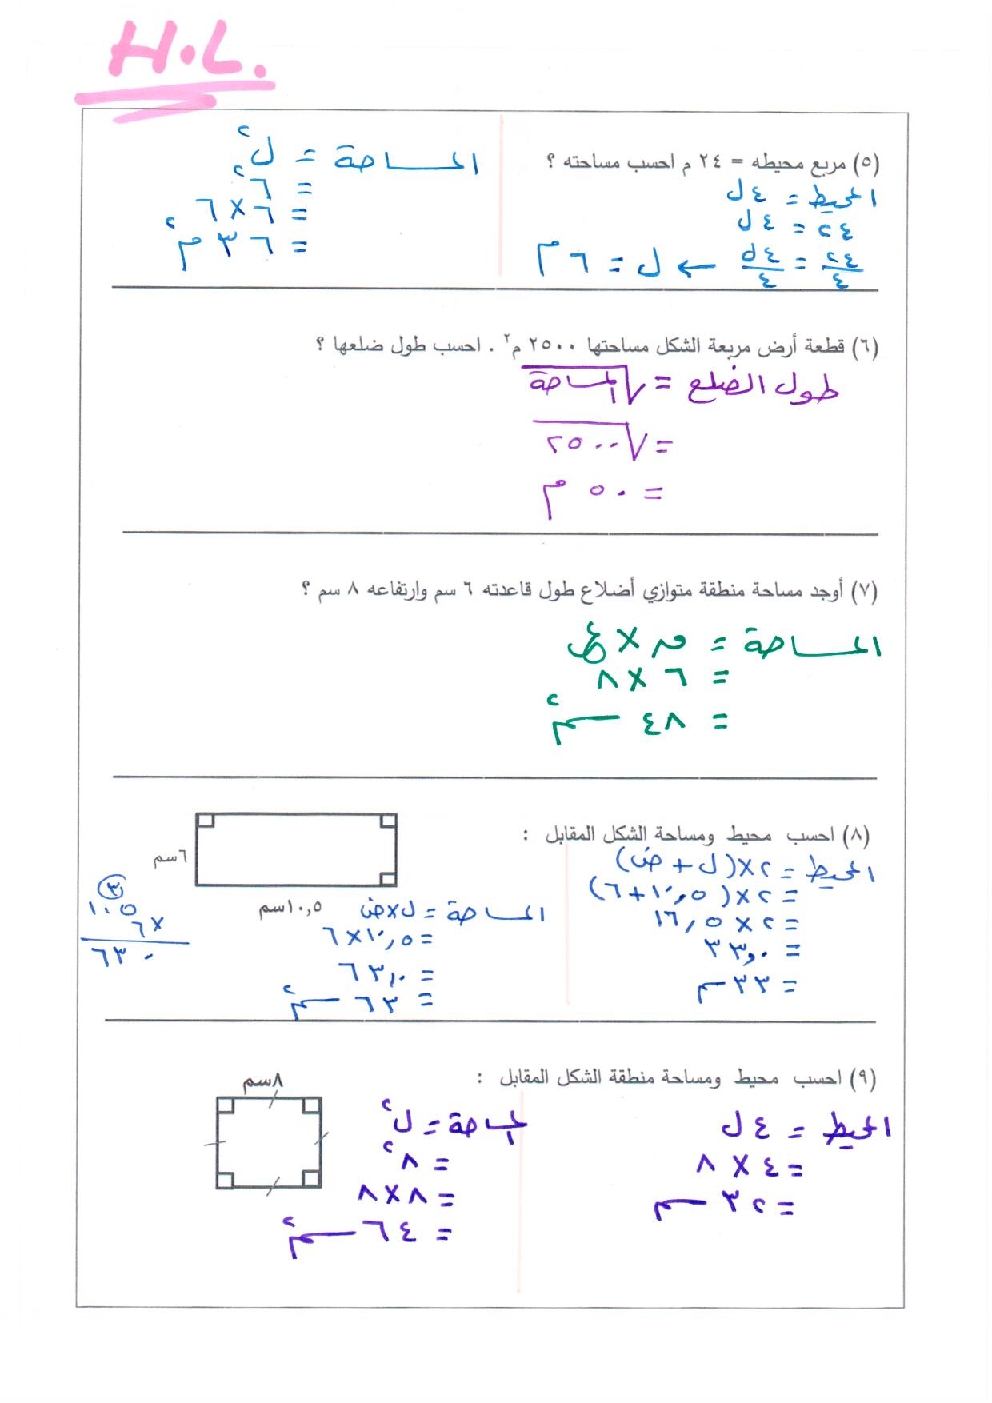 H.L.
(٥) مربع محيطه = ٢٤ م احسب مساحته ؟
المحيط = ٤ل
٢٤ = ٤ل
٢٤/٤ = ٤ل/٤ ← ل = ٦ م
المساحة = ل²
= ٦²
= ٦ × ٦
= ٣٦ م²
(٦) قطعة أرض مربعة الشكل مساحتها ٢٥٠٠ م² . احسب طول ضلعها ؟
طول الضلع = √المساحة
= √٢٥٠٠
= ٥٠ م
(٧) أوجد مساحة منطقة متوازي أضلاع طول قاعدته ٦ سم وارتفاعه ٨ سم ؟
المساحة = ق × ع
= ٦ × ٨
= ٤٨ سم²
(٨) احسب محيط ومساحة الشكل المقابل :
٦سم
١٠,٥سم
المحيط = ٢ × (ل + ض)
= ٢ × (١٠,٥ + ٦)
= ٢ × ١٦,٥
= ٣٣,٠
= ٣٣ سم
المساحة = ل × ض
= ١٠,٥ × ٦
= ٦٣,٠
= ٦٣ سم²
٣
١٠٥
٦ ×
٦٣٠
(٩) احسب محيط ومساحة منطقة الشكل المقابل :
٨سم
المحيط = ٤ ل
= ٤ × ٨
= ٣٢ سم
المساحة = ل²
= ٨²
= ٨ × ٨
= ٦٤ سم²